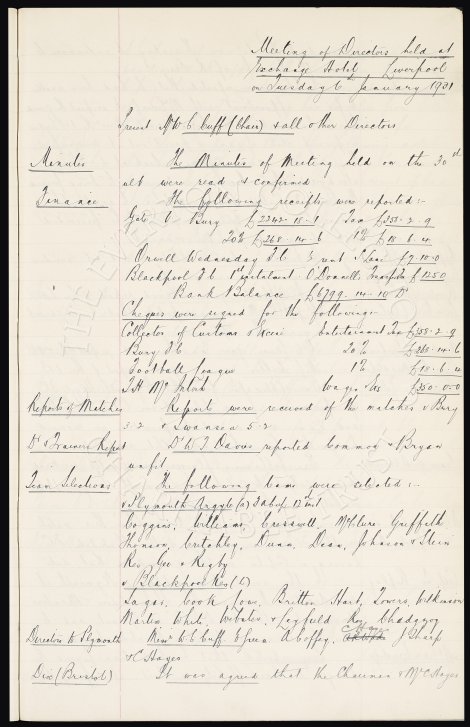 Meeting of Directors held at
Exchange Hotel, Liverpool
on Tuesday 6th January 1931
Present Mr W C Cuff (Chair) & all other Directors
Minutes The Minutes of Meeting held on the 30th
ult were read & confirmed
Finance The following receipts were reported:-
Gate v Bury £2242-18-1 Tax £358-2-9
20% £268-14-6 1% £18-6-4
Orwell Wednesday F C rent £7-10-0
Blackpool F C 1st instalment O'Donnells Transfer £1250
Bank Balance £6799-14-10 D
Cheques were signed for the following:-
Collector of Customs & Excise Entertainment Tax £358-2-9
Bury F C 20% £268-14-6
Football League 1% £18-6-4
T.H. McIntosh Wages &c £350-0-0
Reports of Matches Reports were received of the matches v Bury
3-2 & Swansea 5-2
Dr & Trainers Report Dr W T Davies reported Common & Bryan
unfit
Team Selections The following teams were selected:-
v Plymouth Argyle (a) 3d Cup 10th inst
Coggins, Williams, Cresswell, McClure, Griffiths
Thomson, Critchley, Dunn, Dean, Johnson & Stein
Res Gee & Rigby
v Blackpool Res (C)
Sagar, Cook, Low, Britton, Hart, Towers, Wilkinson
Martin, White, Webster, & Leyfield Res Chedgzoy
Directors to Plymouth Messrs W C Cuff E Green A Coffey, J Sharp
& C Hayes
Dix (Bristol) It was agreed that the Chairman & Mr C Hayes